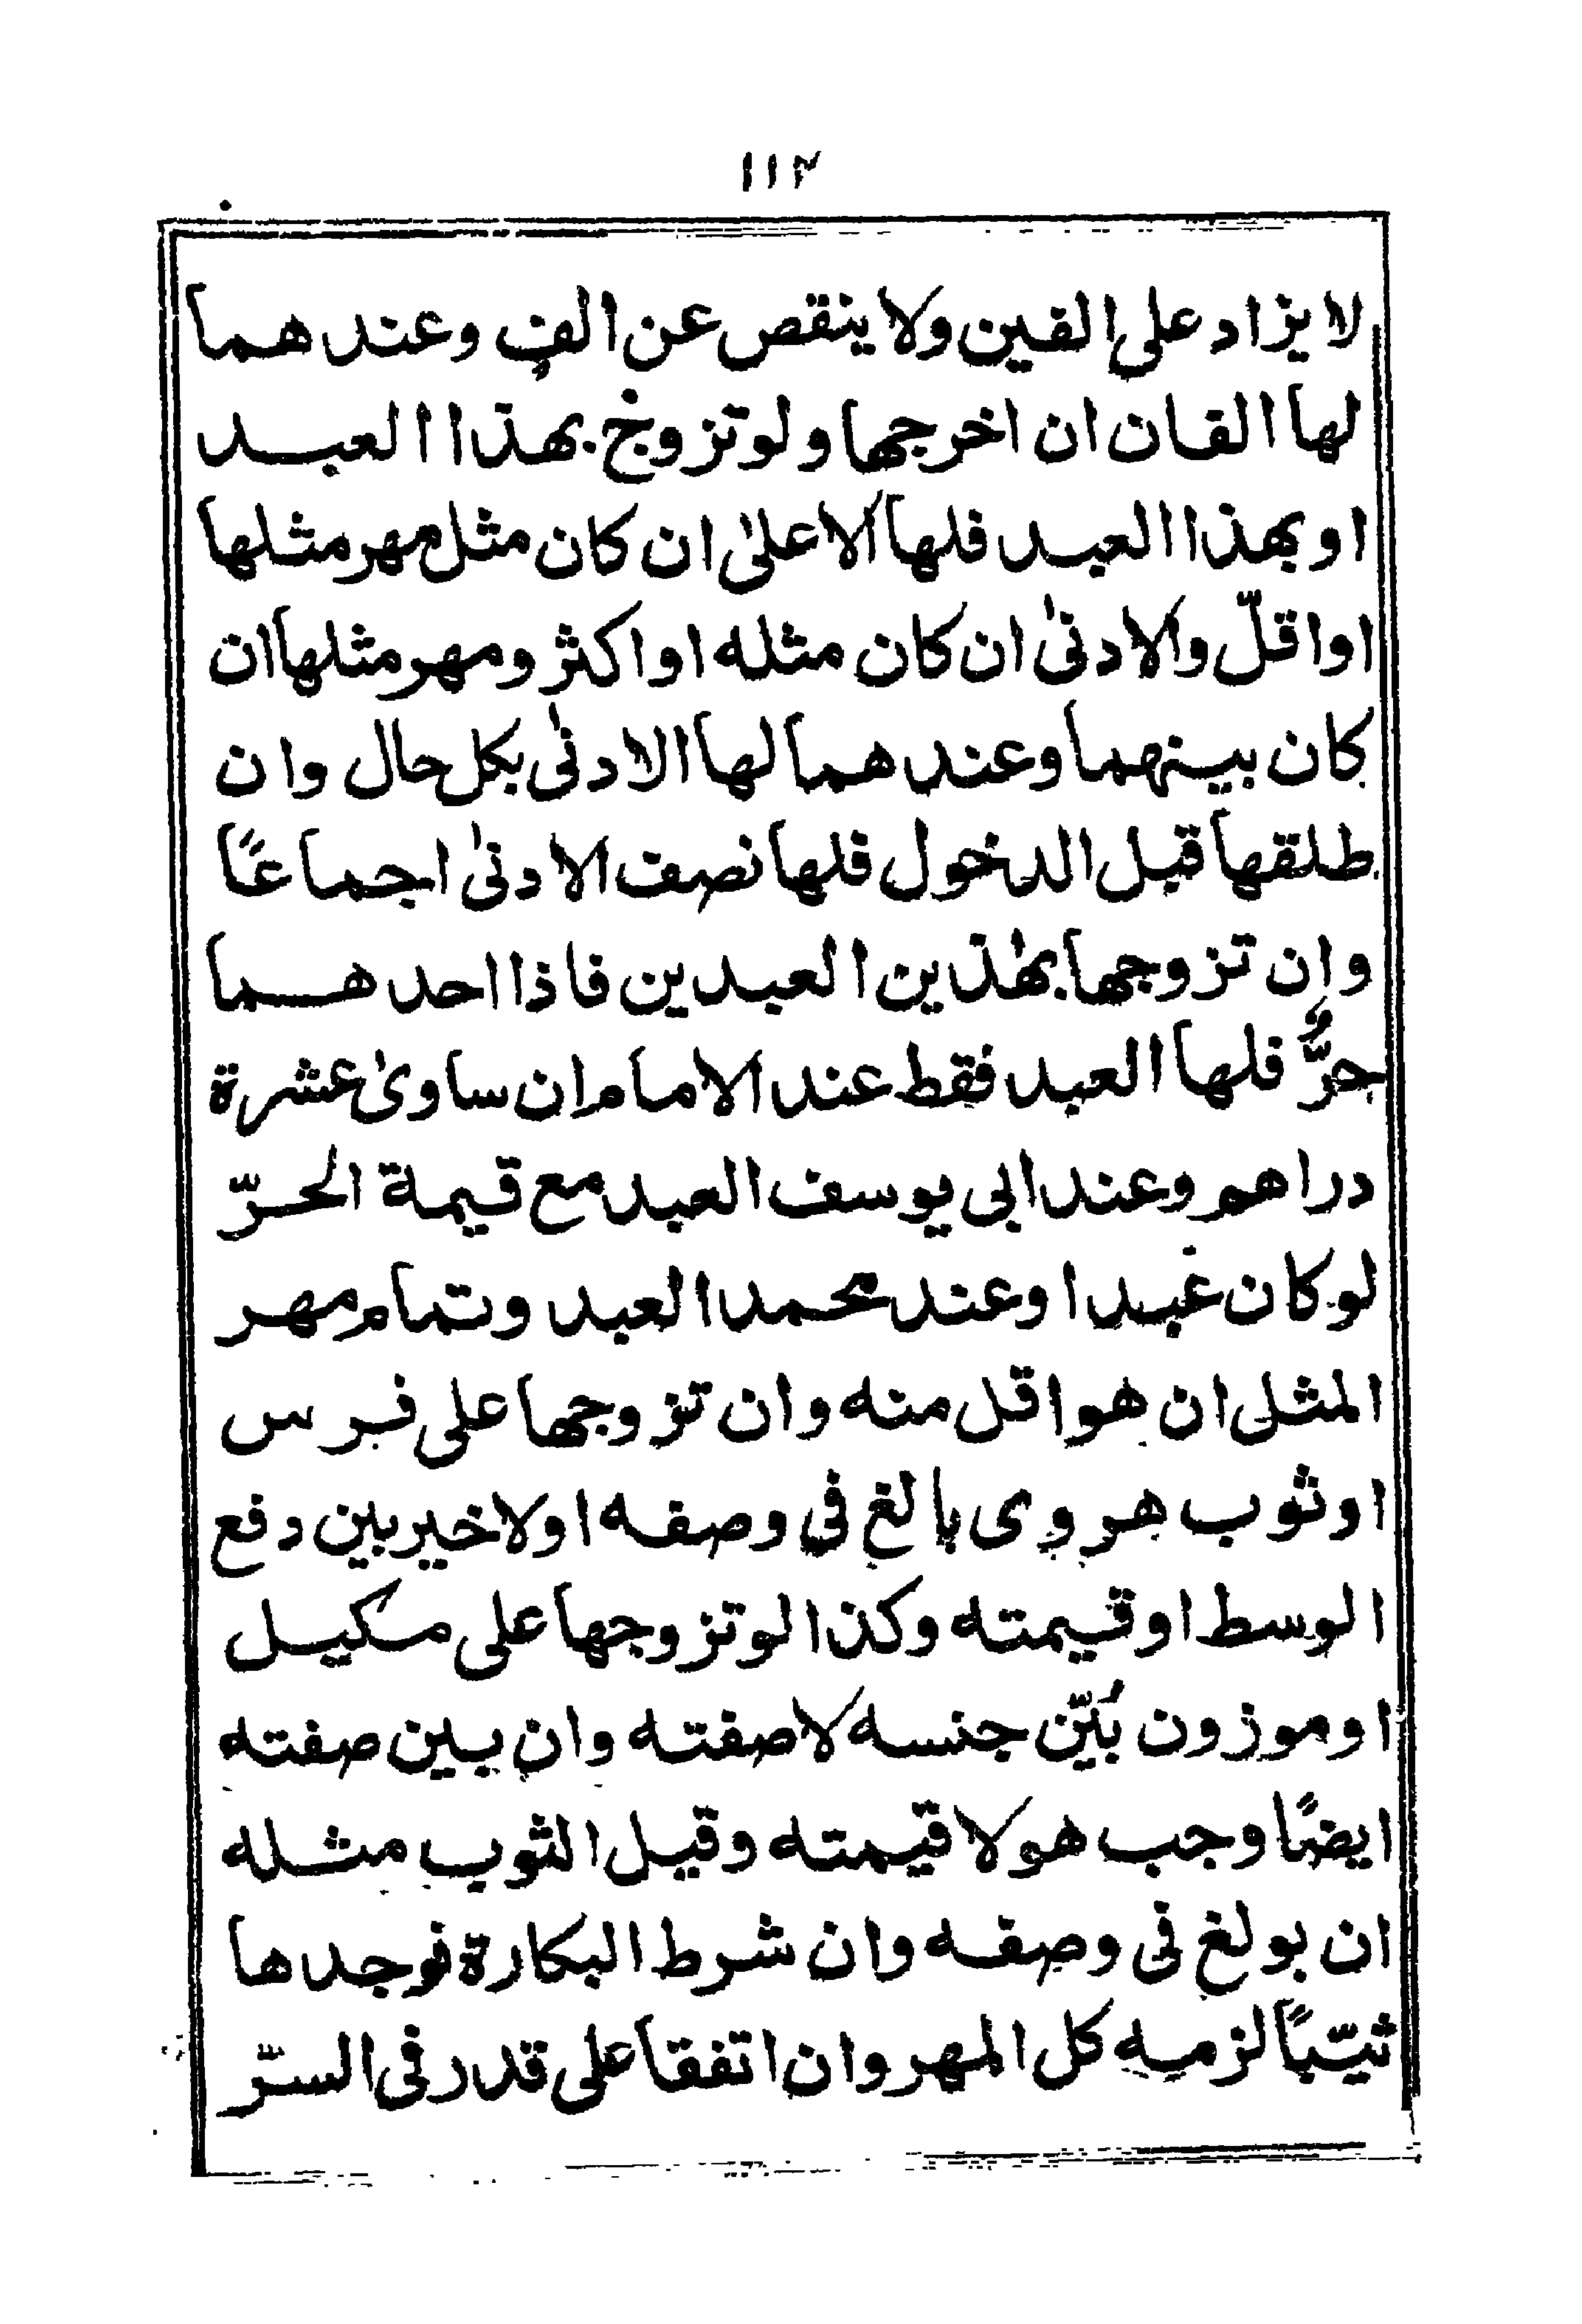 ١١٢
لا يزاد على الفين ولا ينقص عن الفٍ وعند هما
لها الفان ان اخرجها ولو تزوج بهذا العبد
او بهذا العبد فلها الاعلىٰ ان كان مثل مهر مثلها
او اقلّ والادنىٰ ان كان مثله او اكثر ومهر مثلها ان
كان بينهما وعند هما لها الادنىٰ بكل حال وان
طلقها قبل الدخول فلها نصف الادنىٰ اجماعًا
وان تزوجها بهٰذين العبدين فاذا احد هما
حرٌّ فلها العبد فقط عند الامام ان ساوىٰ عشرة
دراهم وعند ابى يوسف العبد مع قيمة الحرّ
لو كان عبدا وعند محمد العبد وتمام مهر
المثل ان هو اقل منه وان تزوجها على فرس
او ثوب هروى بالغ فى وصفه اولا خير بين دفع
الوسط او قيمته وكذا لو تزوجها على مكيل
او موزون بُيّن جنسه لا صفته وان بين صفته
ايضًا وجب هو لا قيمته وقيل الثوب مثله
ان بولغ فى وصفه وان شرط البكارة فوجدها
ثيّبًا لزمه كل المهر وان اتفقا على قدر فى السرّ